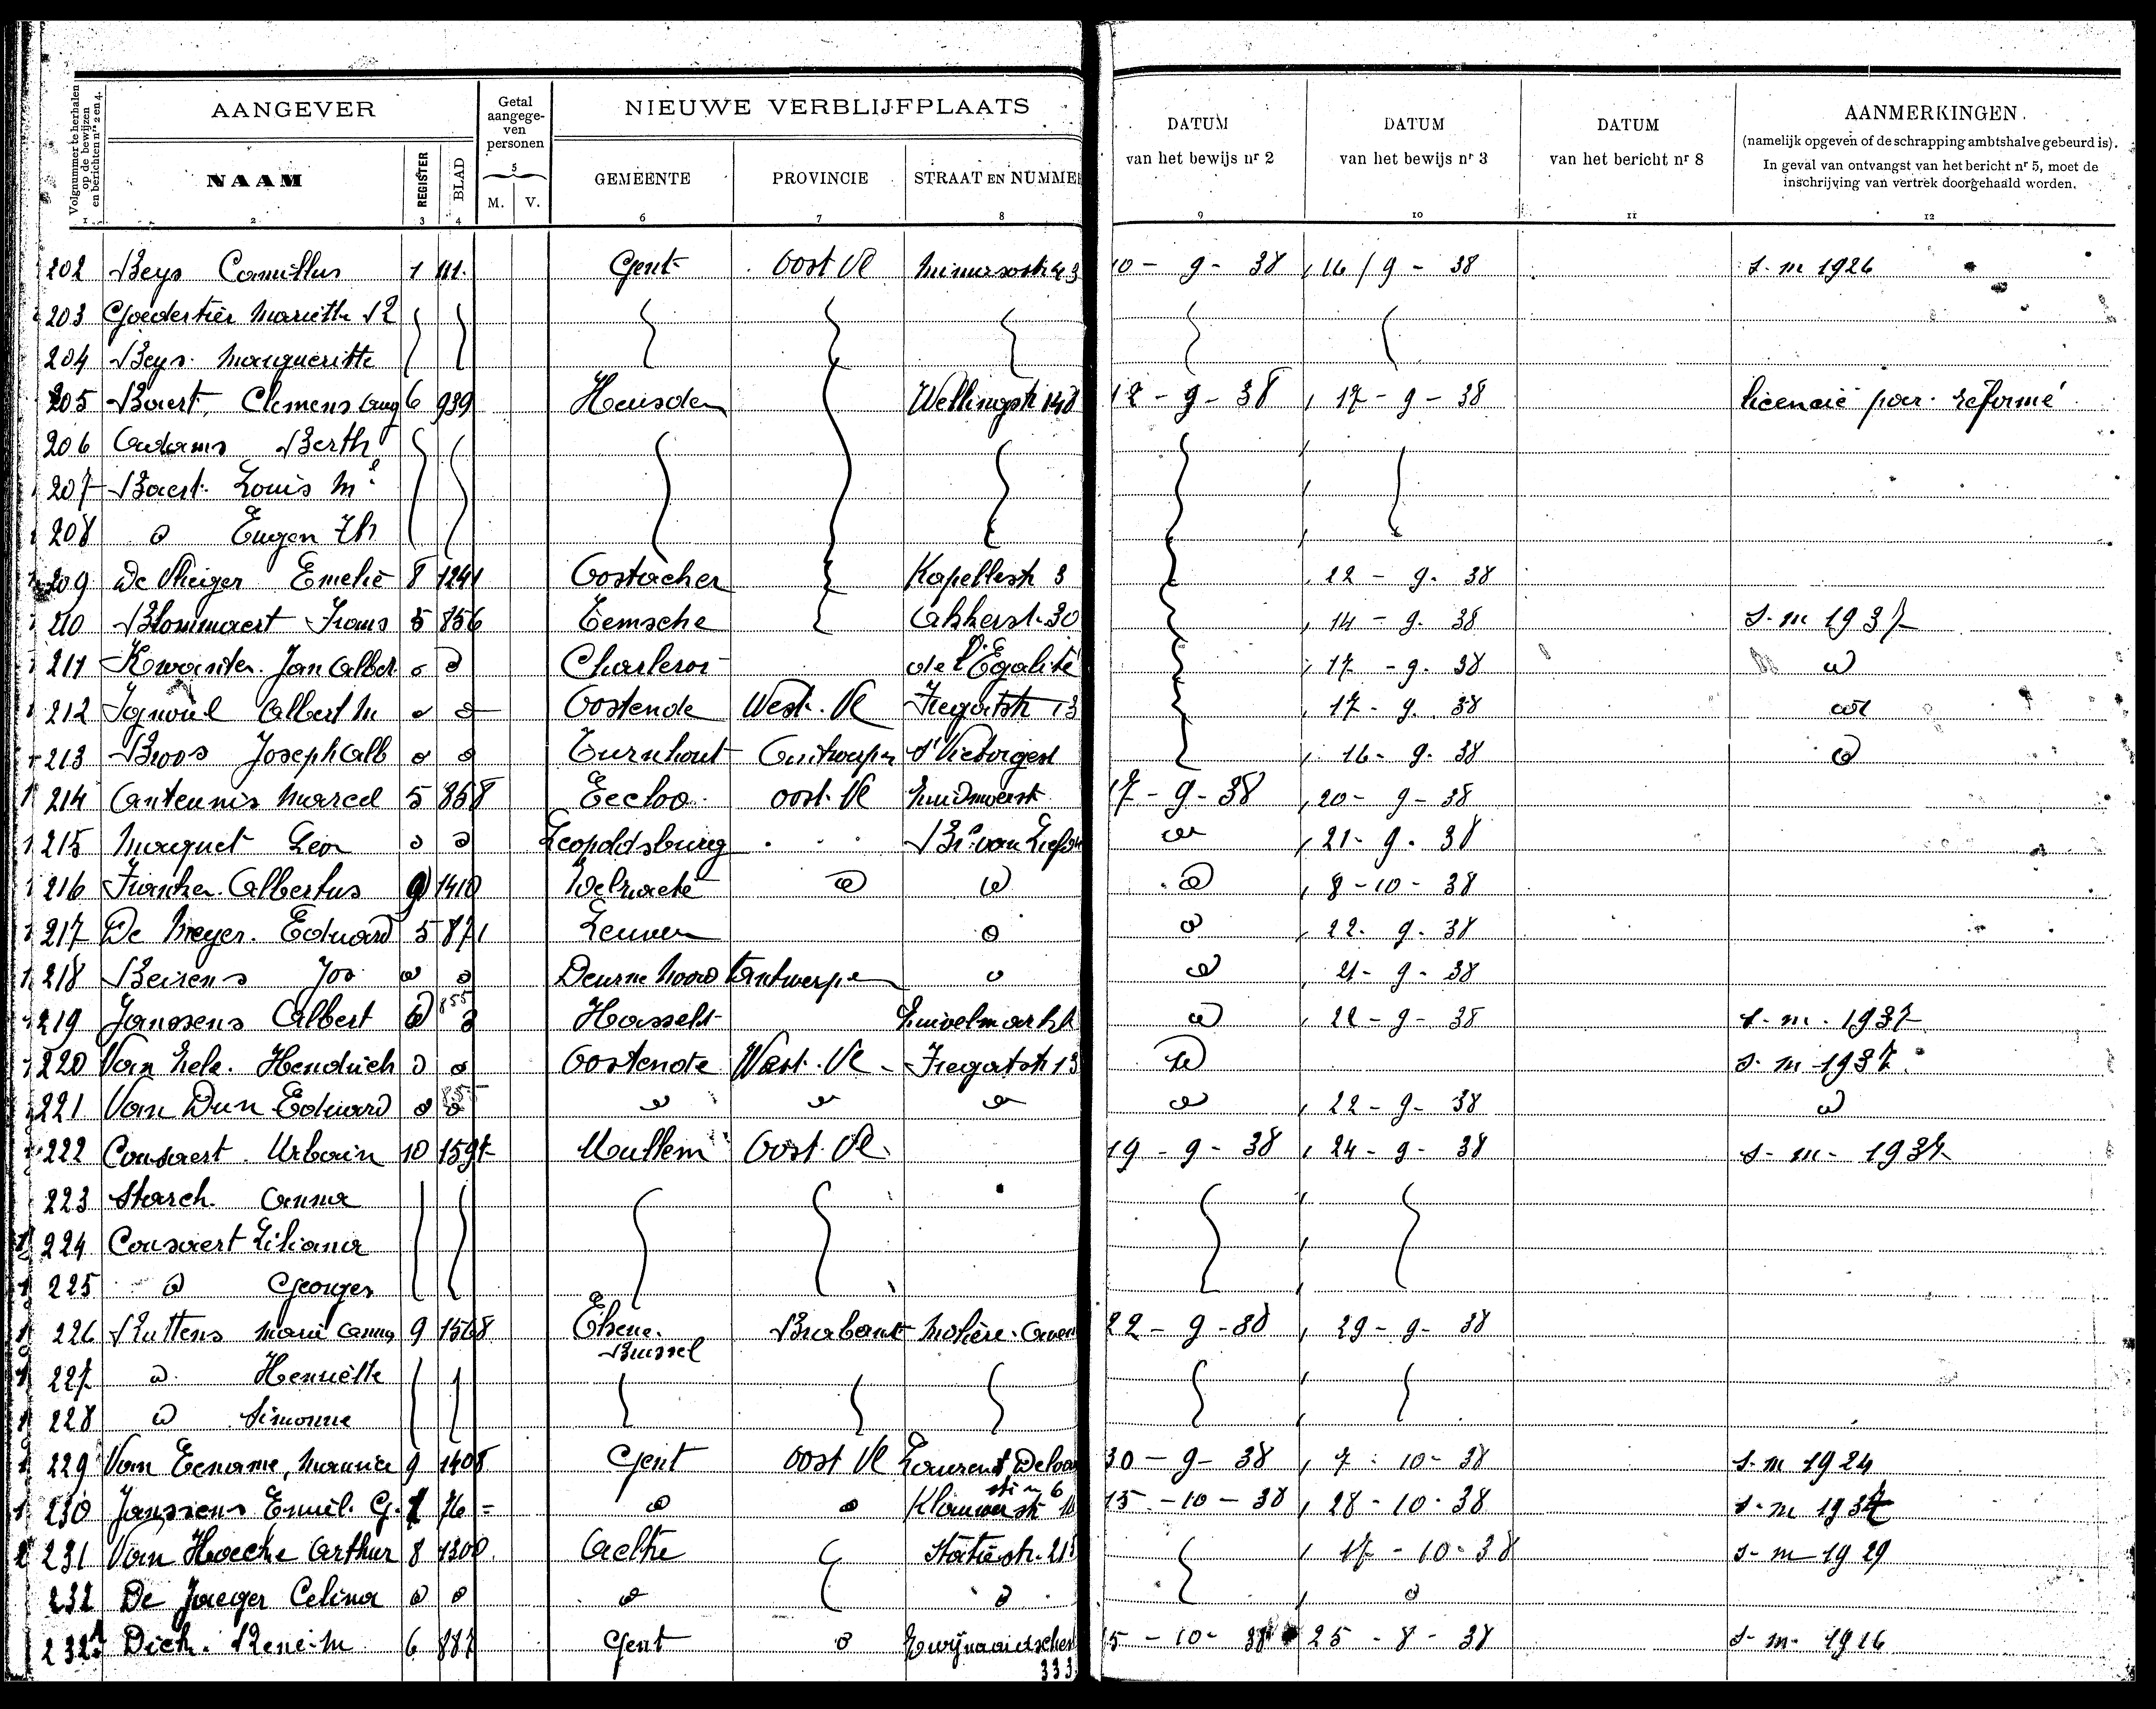 Volgnummer te herhalen op de bewijzen en berichten nrs 2 en 4.
AANGEVER
Getal aangege-ven personen
NIEUWE VERBLIJFPLAATS
DATUM van het bewijs nr 2
DATUM van het bewijs nr 3
DATUM van het bericht nr 8
AANMERKINGEN.
(namelijk opgeven of de schrapping ambtshalve gebeurd is).
In geval van ontvangst van het bericht nr 5, moet de
inschrijving van vertrek doorgehaald worden.
NAAM REGISTER BLAD 5 M. V. GEMEENTE PROVINCIE STRAAT EN NUMME
1 2 3 4 6 7 8 9 10 11 12
202 Beys Camillus 1 111. Gent Oost Vl 10 - 9 - 38 16 / 9 - 38 s. m 1926
203 Goedertier Mariette
204 Beys Margueritte
205 Baert, Clemens Aug 6 939 Heusden Wellingstr 148 12 - 9 - 38 17 - 9 - 38 licencié par réformé
206 Adams Berth
207 Baert Louis
208 d Eugen Th
209 De Vlieger Emelie 8 1241 Oostacker Kapellestr 3 22 - 9 - 38
210 Blommaert Frans 5 856 Temsche Akkerst 30 14 - 9 - 38 s. m 1937
211 Jan Albert d d Charleroi de l'Egalité 17 - 9 - 38 d
212 Albert M d d Oostende West. Vl Fregatstr 13 17 - 9 - 38 d
213 Broos Joseph Alb d d Turnhout Antwerpen 16 - 9 - 38 d
214 Anteunis Marcel 5 858 Eecloo oost. Vl Zuidmoerst 17 - 9 - 38 20 - 9 - 38
215 Maquet Leon d d Leopoldsburg d 21 - 9 - 38
216 Albertus 9 1410 Welraete d d d 8 - 10 - 38
217 De Meyer Eduard 5 871 Leuven d d 22 - 9 - 38
218 Beirens Jos d d Deurne Noord Antwerpen d d 21 - 9 - 38
219 Janssens Albert d 855 Hasselt Zuivelmarkt d 22 - 9 - 38 s. m. 1937
220 Van Hendrick d d Oostende West. Vl Fregatstr 13 d s. m 1937
221 Van Dun Eduard d 855 d d d d 22 - 9 - 38 d
222 Cousaert Urbain 10 1597 Mullem Oost. Vl 19 - 9 - 38 24 - 9 - 38 s. m. 1937
223 Storch Anna
224 Cousaert Liliana
225 d Georges
226 Ruttens Marie Anna 9 1568 Elsene Brussel Brabant Molière Aven 22 - 9 - 38 29 - 9 - 38
227 d Henriette
228 d Simonne
229 Van Eename, Maurice 9 1408 Gent Oost Vl Laurent Delvau str n 6 30 - 9 - 38 7 - 10 - 38 s. m 1924
230 Janssens Emil. G. 1 76 = d d 15 - 10 - 38 28 - 10 - 38 s. m 1937
231 Van Hoecke Arthur 8 1300 Aeltre Statiestr. 21 17 - 10 - 38 s. m 1929
232 De Jaeger Celina d d d d d
232A Dick René M 6 887 Gent d Zwijnaardschen 333 15 - 10 - 38 25 - 8 - 38 s. m. 1926